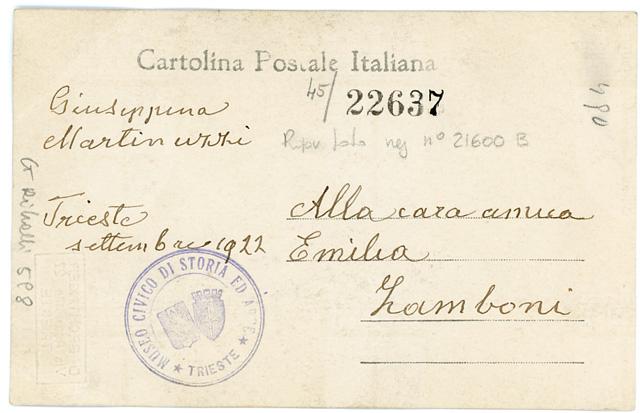 Cartolina Postale Italiana
45/ 22637
Giuseppina
Martinuzzi
Ripr. foto neg n° 21600 B
480
Trieste
settembre 1922
Alla cara amica
Emilia
Zamboni
598
MUSEO CIVICO DI STORIA ED ARTE
★ TRIESTE ★